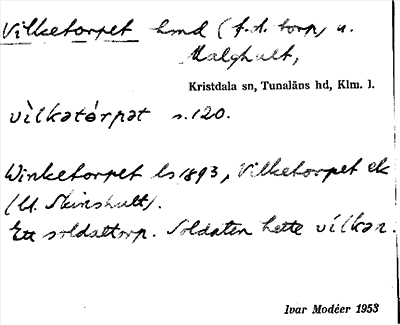 Vilketorpet hmd (f.d. torp) u.
Malghult,
Kristdala sn, Tunaläns hd, Klm. l.
vìlkətórpət s.120.
Winketorpet ls 1893, Vilketorpet ek
(bl. Skinshult).
Ett soldattorp. Soldaten hette vílkən.
Ivar Modéer 1953